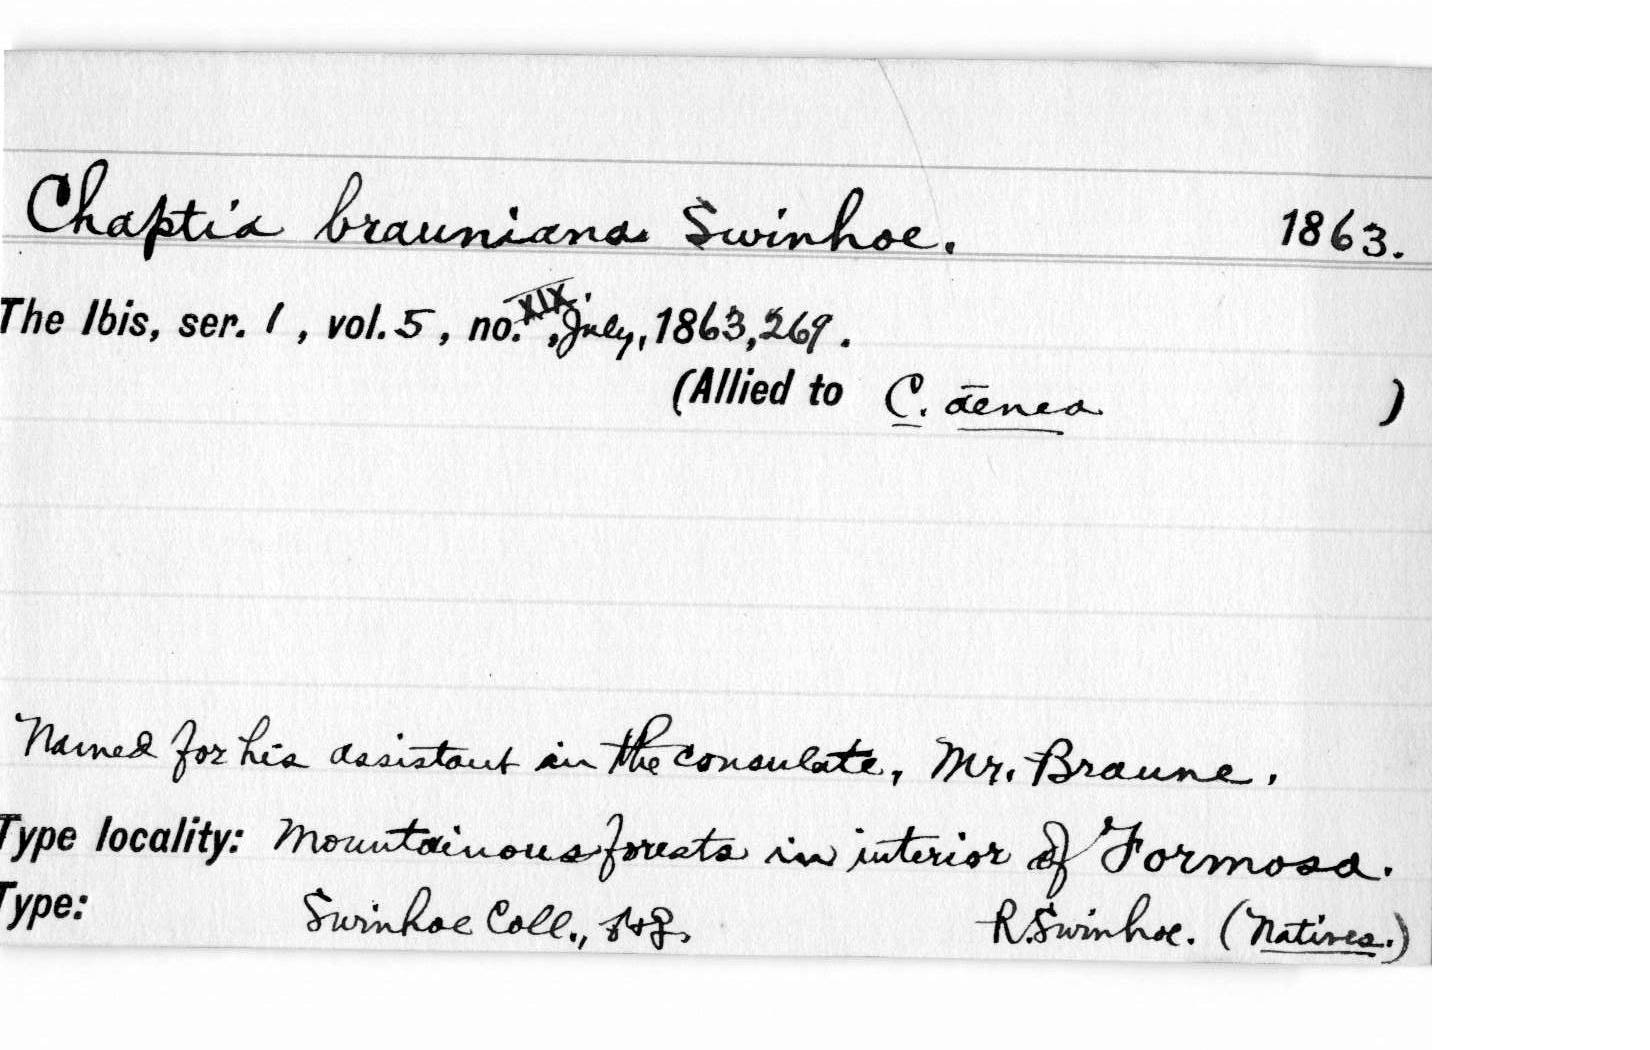 Chaptia brauniana Swinhoe. 1863.
The Ibis, ser. 1, vol. 5, no. XIX, July, 1863, 269.
(Allied to C. aenea )
Named for his assistant in the consulate, Mr. Braune.
Type locality: Mountainous forests in interior of Formosa.
Type: Swinhoe Coll., R. Swinhoe. (Natives.)